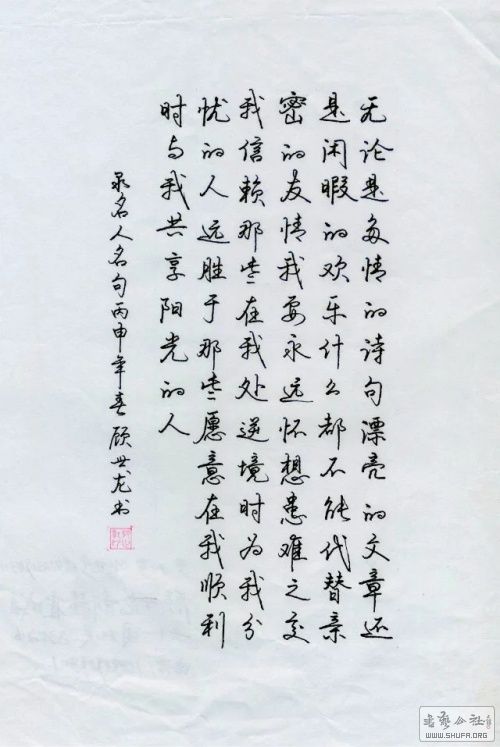 无论是多情的诗句漂亮的文章还
是闲暇的欢乐什么都不能代替亲
密的友情我要永远怀想患难之交
我信赖那些在我处逆境时为我分
忧的人远胜于那些愿意在我顺利
时与我共享阳光的人
录名人名句丙申年春顾世龙书
WWW.SHUFA.ORG